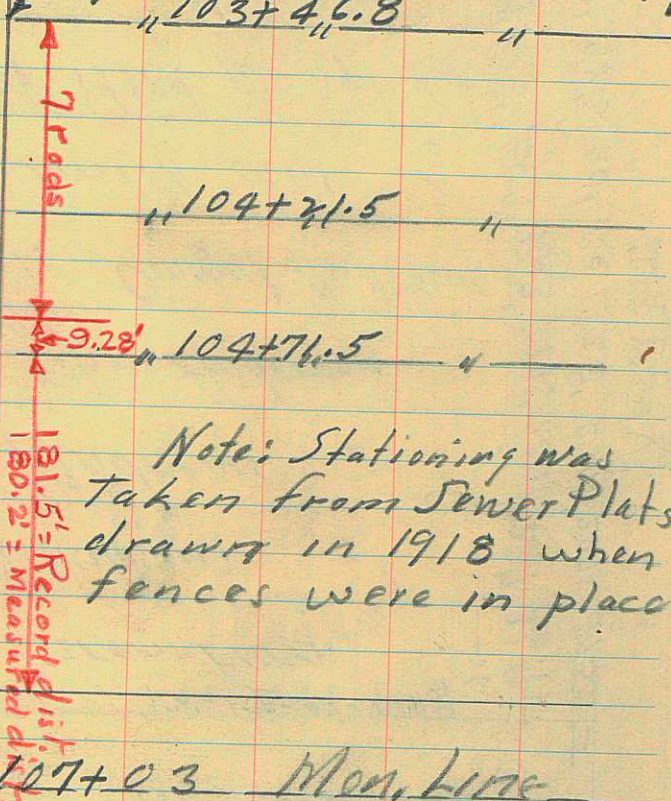 " 103+46.8 " "
7 rods
" 104+21.5 " "
9.28'
" 104+71.5 " "
Note: Stationing was
Taken from Sewer Plats
drawn in 1918 when
fences were in place
181.5' = Record dist.
180.2' = Measured dist
107+03 Mon. Line